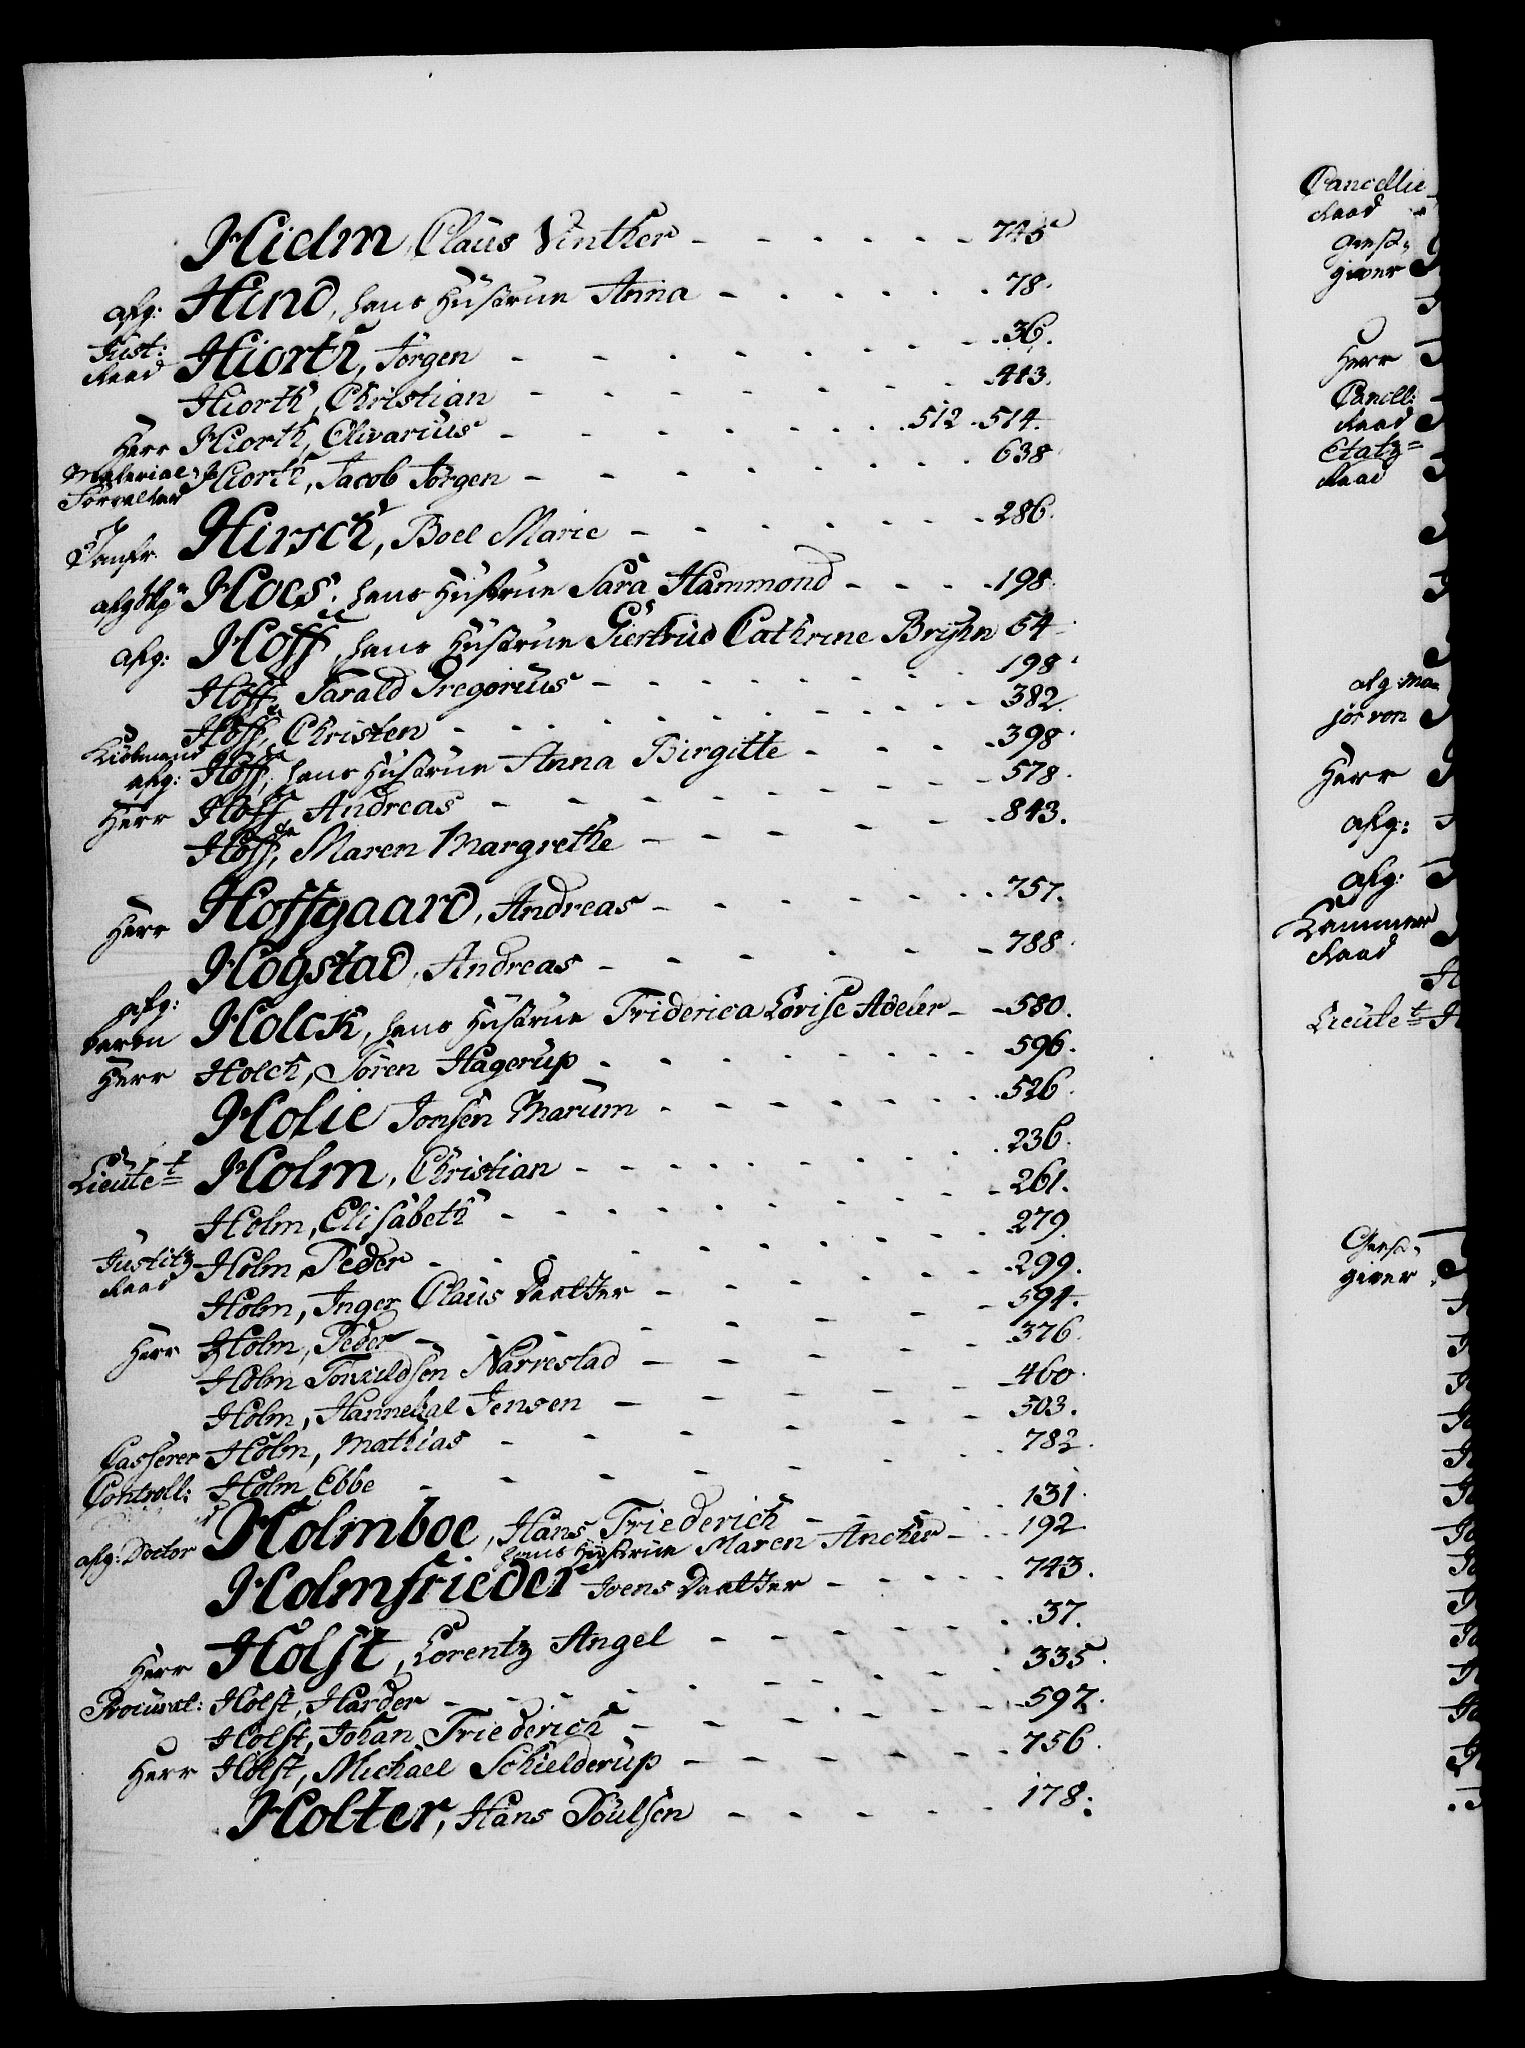 Hielm, Claus Vinther - - - - - - 745
afg: Hind, hans Hustrue Anna - - - - - - 78.
Just: Raad Hiorth, Jørgen - - - - - - - - 36.
Hiorth, Christian - - - - - - - - 443.
Herr Hiorth, Olivarius - - - - - - 512. 514.
Material: Forvalter Hiorth, Jacob Jørgen - - - - - - - 638
Jomfr. Hirsch, Boel Marie - - - - - - 286.
afg: Hoes, hans Hustrue Sara Hammond - - - - 198.
afg: Hoff, hans Hustrue Giertrud Cathrine Bryhn 54
Hoff, Tarald Gregorius - - - - - - - 198.
Hoff, Christen - - - - - - - - 382.
Kiøbmand afg: Hoff, hans Hustrue Anna Birgitte - - - - 398.
Herr Hoff, Andreas - - - - - - - - 578.
Hoff, Maren Margrethe - - - - - 843.
Herr Hoffgaard, Andreas - - - - - - 757.
Hogstad, Andreas - - - - - - 788.
afg: Baron Holck, hans Hustrue Friderica Lovise Adeler - - 580.
Herr Holck, Søren Hagerup - - - - - - - 596.
Holie Jonsen Marum - - - - - - - 526.
Lieutet Holm, Christian - - - - - - - - 236.
Holm, Elisabeth - - - - - - - - 261.
Justitz Raad Holm, Peder - - - - - - - - 279.
Holm, Inger Claus Daatter - - - - - - 299.
Herr Holm, Peder - - - - - - - 594.
Holm Torkildsen Narrestad - - - - - 376.
Holm, Hannebal Jensen - - - - - 460.
Casserer Holm, Mathias - - - - - - 503.
Controll: Holm Ebbe - - - - - - - 782.
Holmboe, Hans Friederich - - - - 131.
afg: Doctor hans Hustrue Maren Ancher - - 192.
Holmfrieder Ivens Daatter - - - - - 743.
Herr Holst, Lorentz Angel - - - - - - 37.
Procurat: Holst, Harder - - - - - - - 335.
Holst, Johan Friederich - - - - - - 597.
Herr Holst, Michael Schielderup - - - - - - 756.
Holter, Hans Poulsen - - - - - - 178.
Cancellie Raad
Giest giver
Herr
Cancell: Raad
Etatz= Raad
afg: Major von
Herr
afg:
afg:
Kammer Raad
Lieutet
Giest giver